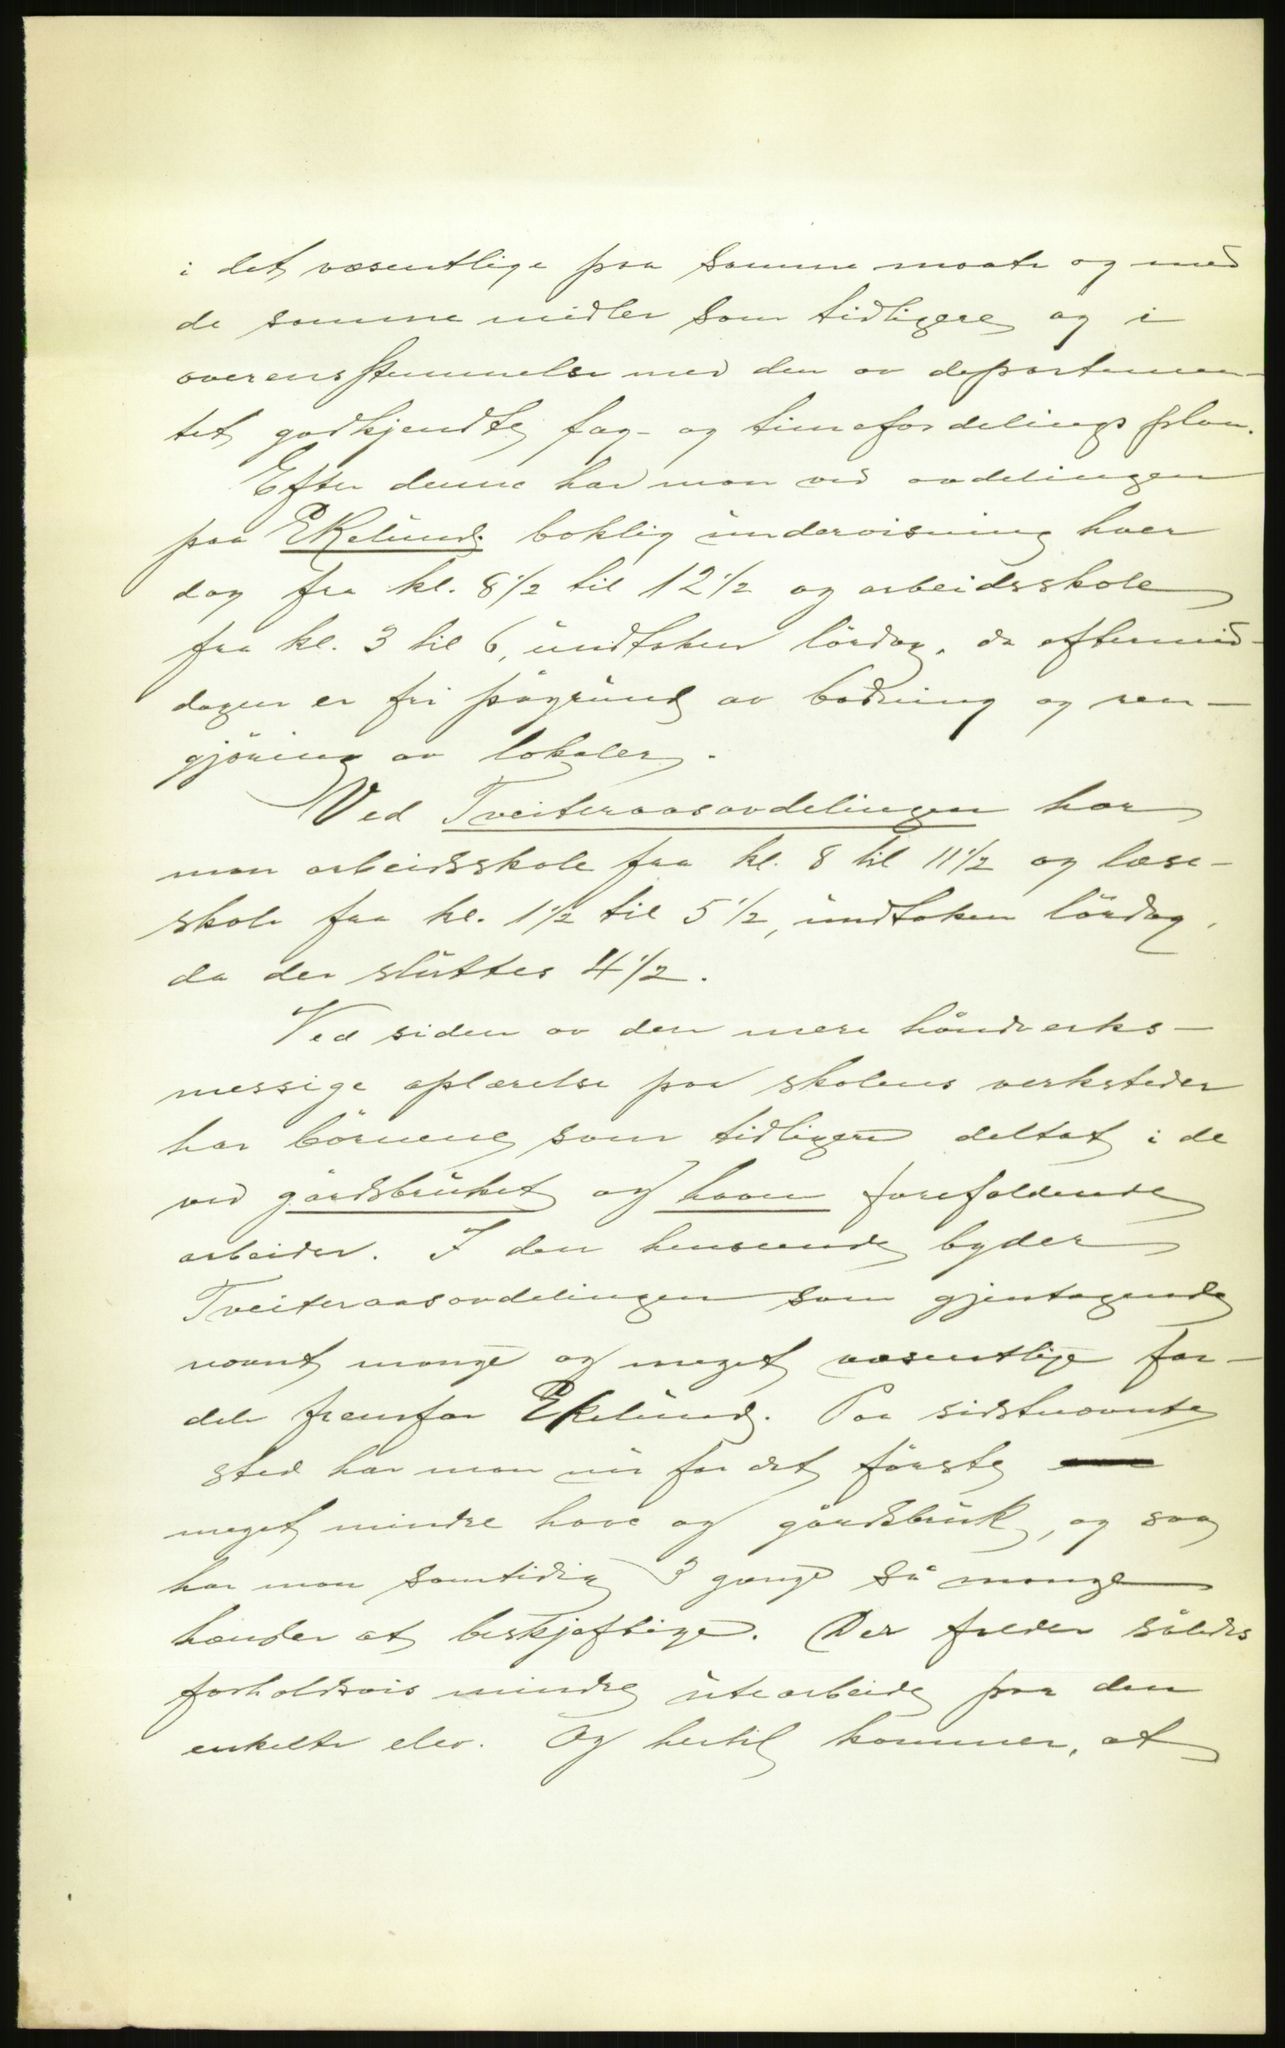 i det væsentlige paa samme maate og med
de samme midler som tidligere og i
overensstemmelse med den av departemen-
tet godkjendte fag- og timefordelingsplan.
Efter denne har man ved avdelingen
paa Ekelund boklig undervisning hver
dag fra kl. 8 1/2 til 12 1/2 og arbeidsskole
fra kl. 3 til 6, undtaken lördag, da eftermid-
dagen er fri pågrund av badning og ren-
gjöring av lokaler.
Ved Tveiteraasavdelingen har
man arbeidsskole fra kl. 8 til 11 1/2 og læse-
skole fra kl. 1 1/2 til 5 1/2, undtaken lördag,
da der sluttes 4 1/2.
Ved siden av den mere håndverks-
messige oplærelse paa skolens verksteder
har börnene som tidligere deltat i de
ved gårdsbruket og haven forefaldende
arbeider. I den henseende byder
Tveiteraasavdelingen som gjentagende
nævnt mange og meget væsentlige for-
dele fremfor Ekelund. Paa sidstnævnte
sted har man nu for det förste
meget mindre have og gårdsbruk, og saa
har man samtidig 3 gange så mange
hænder at beskjæftige. Der falder således
forholdsvis mindre utearbeide paa den
enkelte elev. Og hertil kommer, at